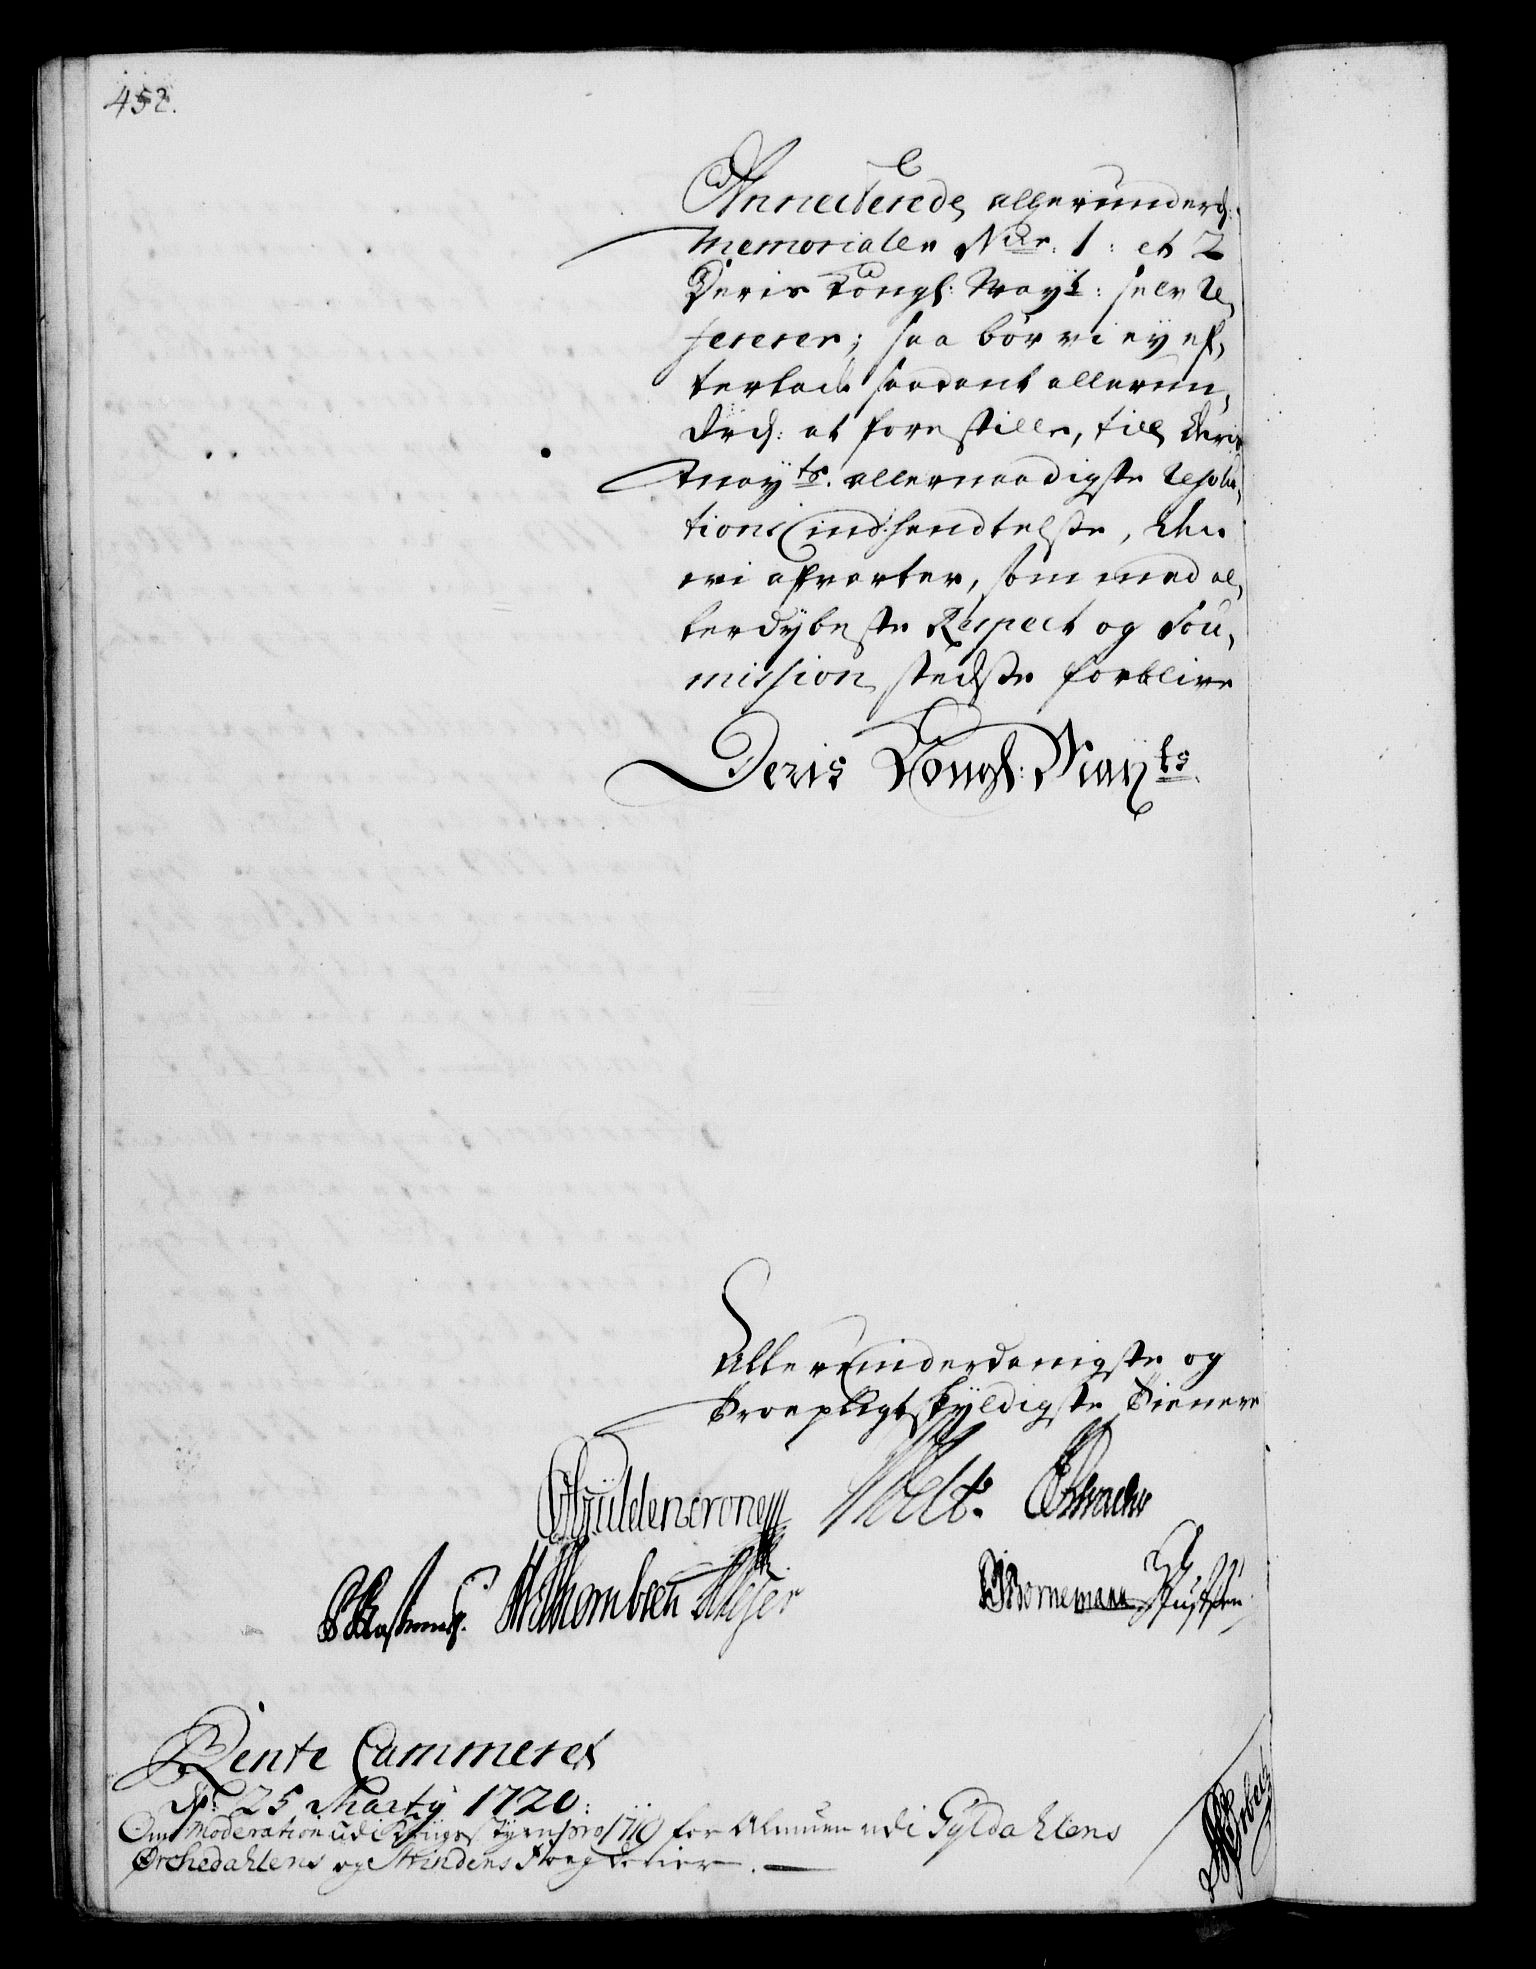 452.
Annecterede allerunderd:
Memorialer N⁰ʳ. 1: et 2
Deris Kongl: Mayt: selv Re,
fererer; saa bør vi ey ef,
terlade saadant allerun,
drd: at forestille, till Deris
Mayts. allernaadigste Resolu,
tions indhendtelse, den
vi afvarter, som med al,
lerdybeste Respect og Sou,
mission stedse forblive
Deris Kongl: Mayts.
Allerunderdanigste og
troepligtskyldigste Tienere
Güldencrone
Wilhombsen Meyer
Bornemann
Rente Cammeret
d: 25 Marty 1720:
Om Moderation udi Krigs Styren pro 1719 for Almuen udi Gyldahlens
Orchedahlens og Strindens Fogderier.